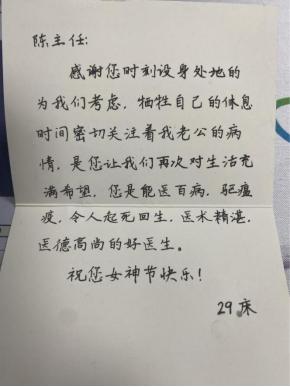 陈主任:
感谢您时刻设身处地的
为我们考虑，牺牲自己的休息
时间密切关注着我老公的病
情，是您让我们再次对生活充
满希望，您是能医百病，驱瘟
疫，令人起死回生，医术精湛，
医德高尚的好医生。
祝您女神节快乐！
29床